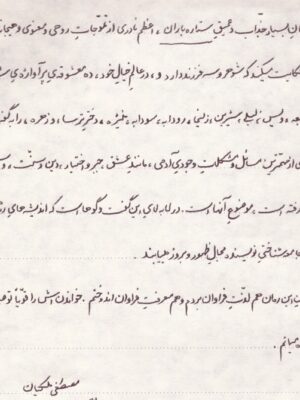 بسیار جذاب و عمیق ستاره باران، اعظم نادری از تموّجات روحی و معنوی و هیجانات
حکایت میکند که شوهر و سه فرزند دارد و، در عالم خیال خود، ده معشوقه‌ی پرآوازه‌ی
ویس، لیلی، شیرین، زلیخا، رودابه، سودابه، منیژه، دختر ترسا، و زهره، را به گفتگو
از مهمترین مسائل و مشکلات وجودی آدمی، مانند عشق، جبر و اختیار، دین و سنّت، و
موضوع آنهاست. در لابه‌لای این گفت و گوهاست که اندیشه‌های
شناختی نویسنده مجال ظهور و بروز مییابند.
این رمان هم لذّت فراوان بردم و هم معرفت فراوان اندوختم. خواندن‌اش را قویّاً توصیه
میکنم.
مصطفی ملکیان